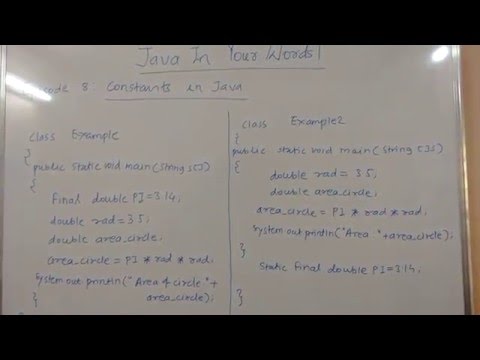 Java In Your Words!
code 8: Constants in Java
class Example
{
public static void main(String [])
{
final double PI=3.14;
double rad=3.5;
double area_circle;
area_circle = PI * rad * rad;
System out println("Area of circle"+
area_circle);
}
class Example2
{
public static void main(String [])
{
double rad = 3.5;
double area_circle;
area_circle = PI * rad * rad;
System out println("Area:"+area_circle);
}
static final double PI=3.14;
}